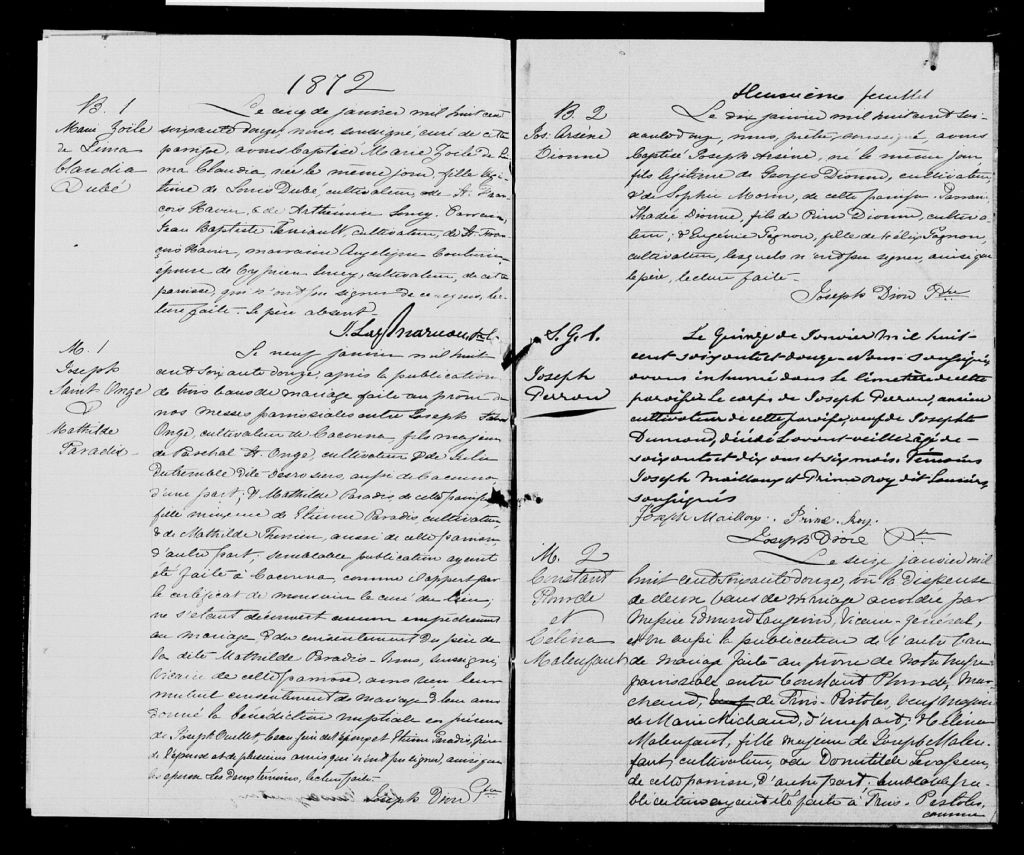 1872
B. 1
Marie Zoile
de Lima
Claudia
Dubé
Le cinq de janvier mil huit cent
soixante douze, nous, soussigné, curé de cette
paroisse, avons baptisé Marie Zoile de Li-
ma Claudia, née le même jour, fille légi-
time de Dubé cultivateur, de St. Fran-
çois Xavier, & de Arthémise Parrain,
Jean Baptiste Teriault, cultivateur, de St. Fran-
çois Xavier, marraine Angelique Couturier
épouse de Cyprien cultivateur, de cette
paroisse, qui n'ont pu signer de ce requis, lec-
ture faite. Le père absent.
J. Laz Marceau, Ptre
M. 1
Joseph
Saint Onge
&
Mathilde
Paradis
Le neuf janvier mil huit
cent soixante douze, après la publication
de trois bans de mariage faite au prône de
nos messes paroissiales entre Joseph Saint
Onge, cultivateur de Cacouna, fils majeur
de Paschal St. Onge, cultivateur & de Julie
Dutremble dite desrosiers, aussi de Cacouna
d'une part; & Mathilde Paradis, de cette paroisse,
fille mineure de Etienne Paradis, cultivateur
& de Mathilde Therrien, aussi de cette paroisse,
d'autre part, semblable publication ayant
été faite à Cacouna, comme il appert par
le certificat de monsieur le curé du lieu;
ne s'étant découvert aucun empêchement
au mariage & du consentement du père de
la dite Mathilde Paradis - Nous, soussigné,
Vicaire de cette paroisse, avons reçu leur
mutuel consentement de mariage & leur avons
donné la bénédiction nuptiale en présence
de Joseph Ouellet, beau frère de l'époux et Etienne Paradis, père
de l'épouse et de plusieurs amis qui n'ont pu signer, ainsi que
les époux & les deux témoins, lecture faite.
Joseph Dion Ptre
Deuxième feuillet
B. 2
Jos. Arsène
Dionne
Le dix janvier mil huit cent soi-
xante douze, nous, prêtre soussigné, avons
baptisé Joseph Arsène, né le même jour,
fils légitime de Georges Dionne, cultivateur,
& de Sophie Morin, de cette paroisse. Parrain
Thadée Dionne, fils de Rémi Dionne, cultiva-
teur; & Eugénie Gagnon, fille de Félix Gagnon,
cultivateur, lesquels n'ont pu signer, ainsi que
le père, lecture faite.
Joseph Dion Ptre
S.G. 1.
Joseph
Perron
Le Quinze de Janvier mil huit-
cent soixante et douze Nous Soussigné
avons inhumé dans le cimetière de cette
paroisse le corps de Joseph Perron, ancien
cultivateur de cette paroisse, veuf de Josephte
Dumond, décédé l'avant-veille âgé de-
soixante et dix ans et six mois. Témoins
Joseph Mailloux & Prime Roy dit
soussignés
Joseph Mailloux. Prime Roy.
Joseph Dion Ptre
M. 2
Constant
Plourde
et
Celina
Malenfant
Le seize janvier mil
huit cent soixante douze, vu la dispense
de deux bans de mariage accordée par
Messire Edmund Langevin, Vicaire-général,
et vu aussi la publication de l'autre ban
de mariage faite au prône de notre messe
paroissiale entre Constant Plourde, mar-
chand, de Trois-Pistoles, veuf majeur
de Marie Michaud, d'une part, & Celina
Malenfant, fille majeure de Joseph Malen-
fant, cultivateur, & de Domitilde Levasseur,
de cette paroisse, d'autre part; semblable pu-
blication ayant été faite à Trois-Pistoles,
comme